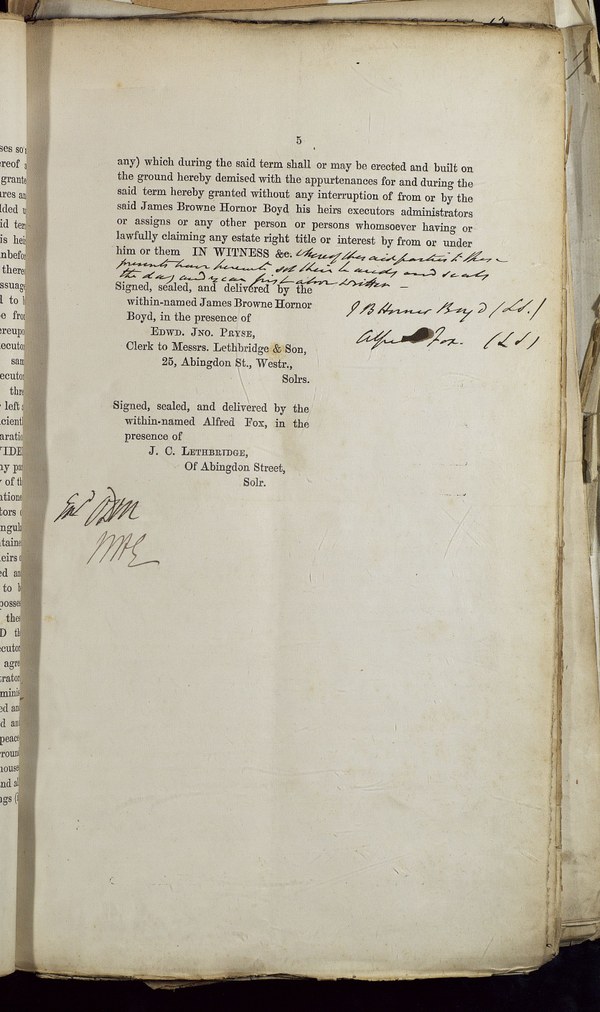 5
any) which during the said term shall or may be erected and built on
the ground hereby demised with the appurtenances for and during the
said term hereby granted without any interruption of from or by the
said James Browne Hornor Boyd his heirs executors administrators
or assigns or any other person or persons whomsoever having or
lawfully claiming any estate right title or interest by from or under
him or them IN WITNESS &c. whereof the said parties to these
presents have hereunto set their hands and seals
the day and year first above written –
Signed, sealed, and delivered by the
within-named James Browne Hornor
Boyd, in the presence of
EDWD. JNO. PRYSE,
Clerk to Messrs. Lethbridge & Son,
25, Abingdon St., Westr.,
Solrs.
J B Hornor Boyd (LS.)
Alfred Fox. (LS)
Signed, sealed, and delivered by the
within-named Alfred Fox, in the
presence of
J. C. LETHBRIDGE,
Of Abingdon Street,
Solr.